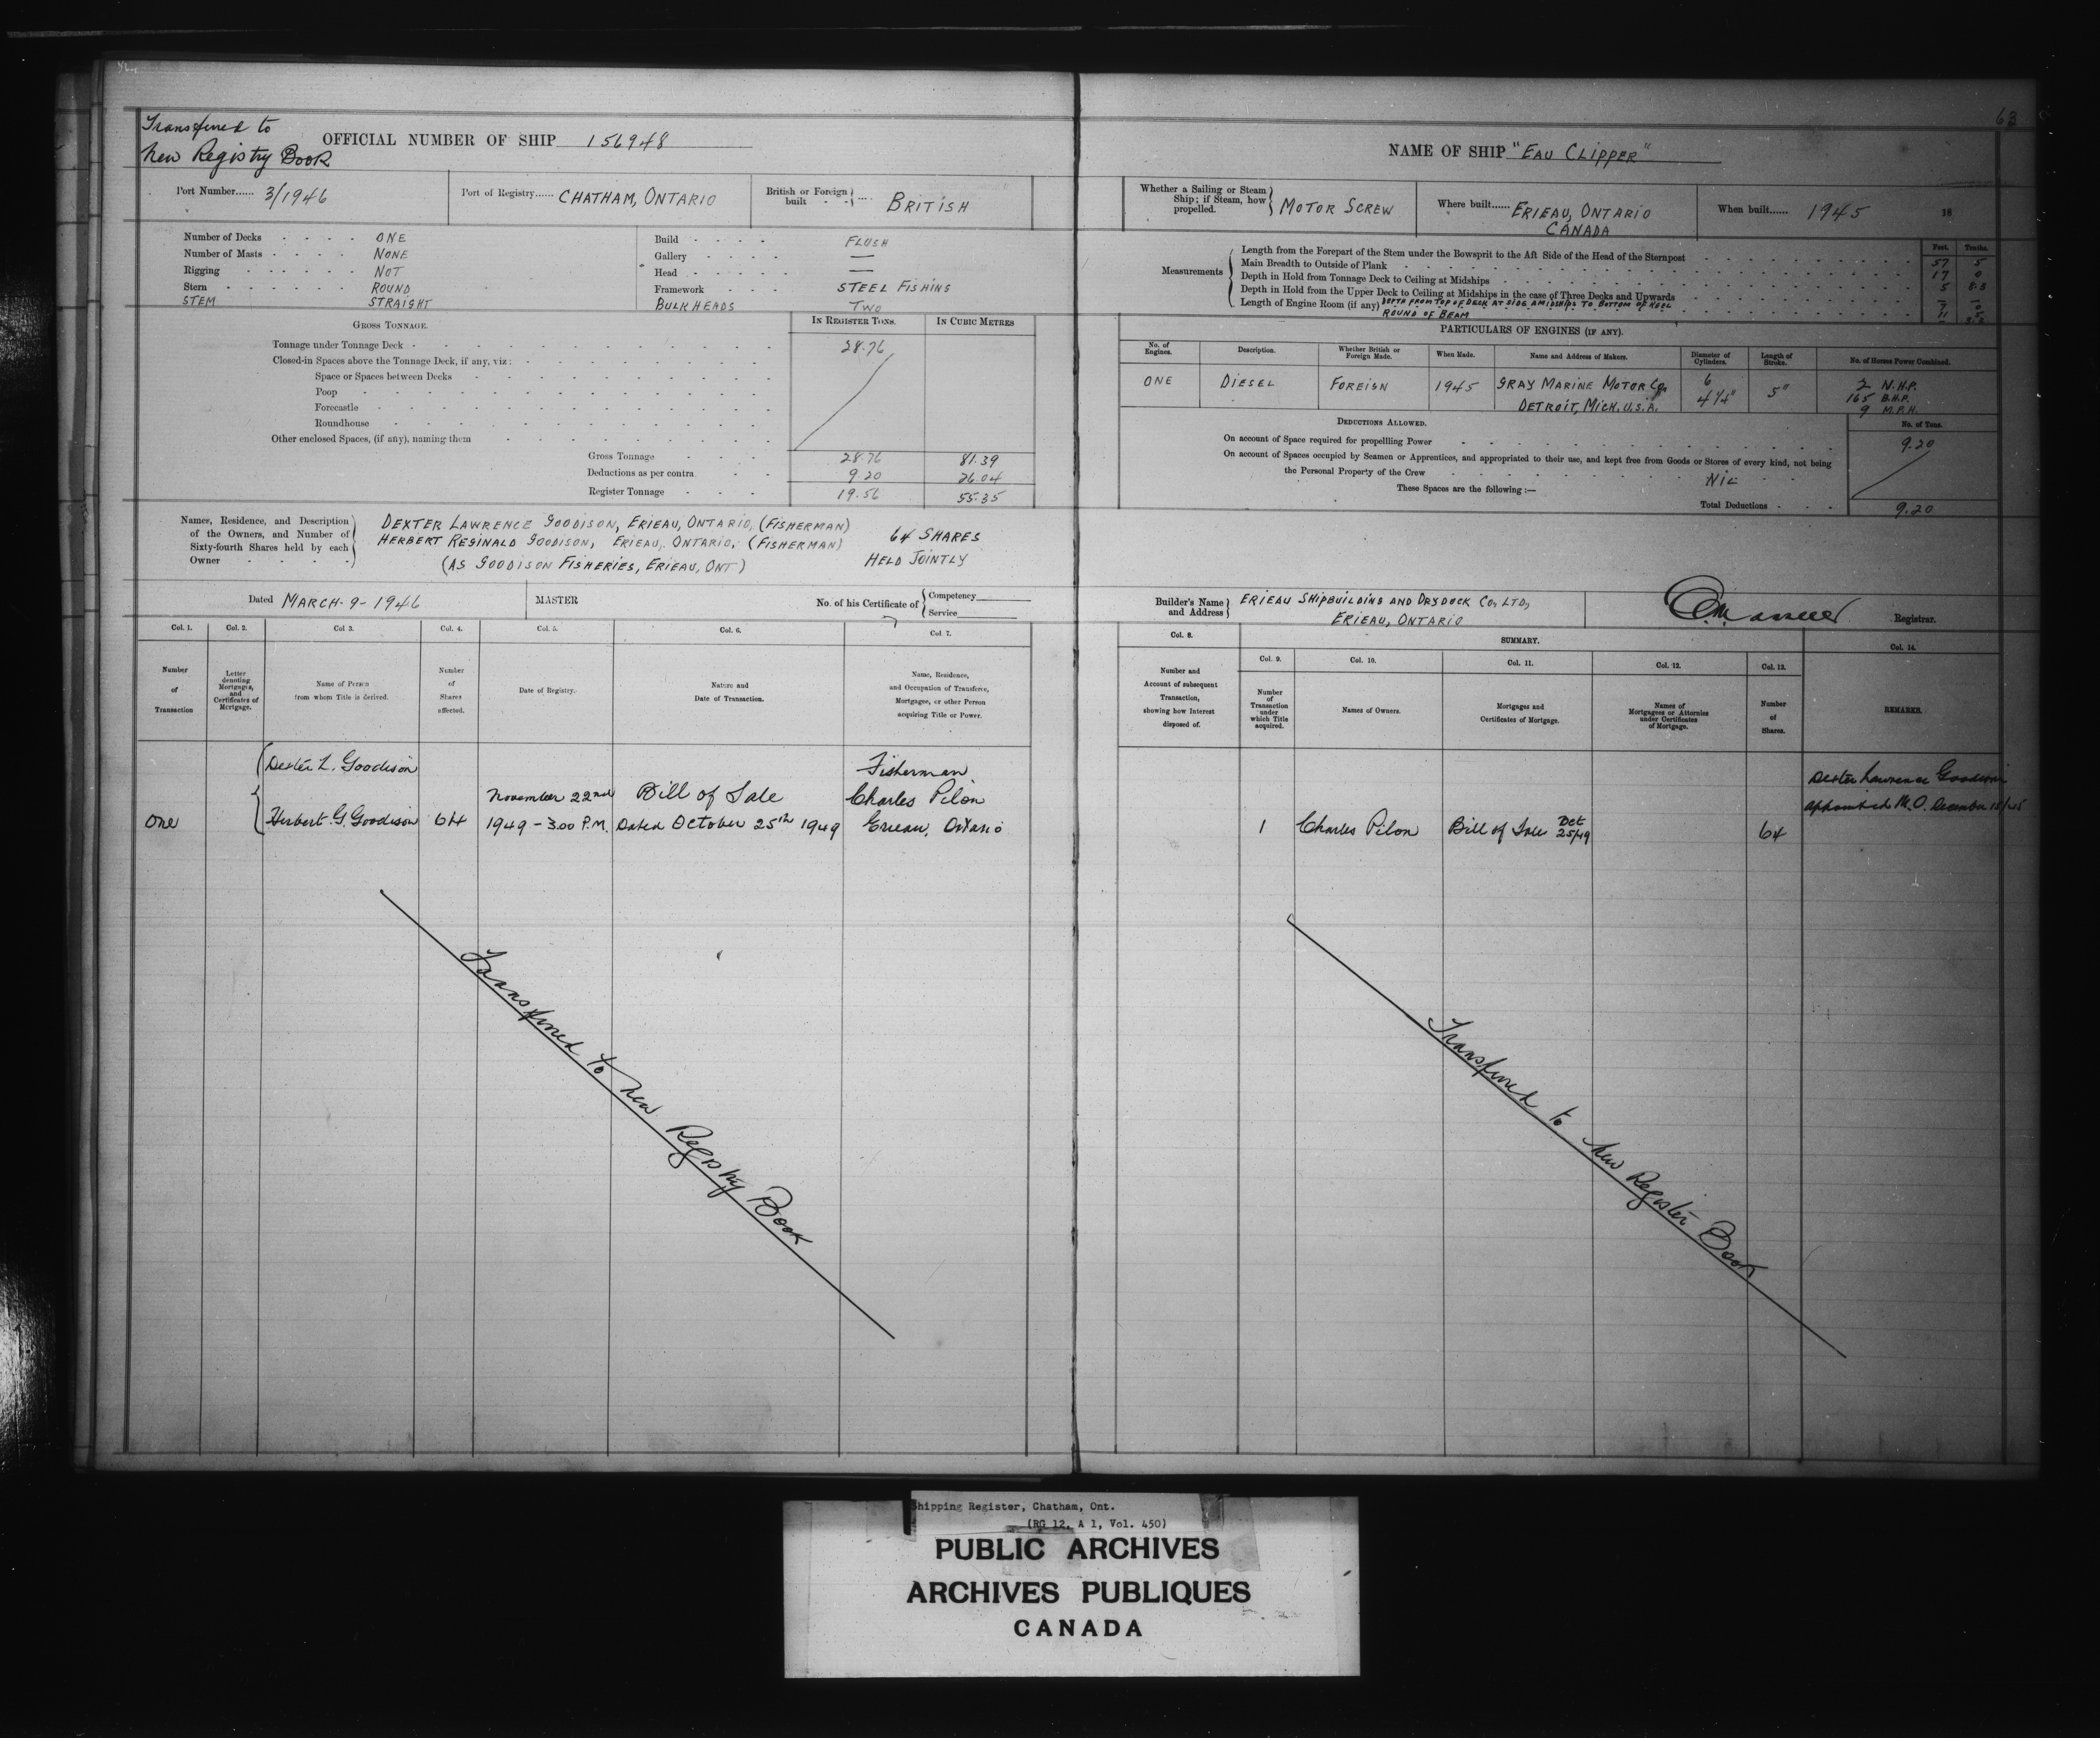 Transferred to
New Registry Book
OFFICIAL NUMBER OF SHIP 156948
Port Number...... 3/1946
Port of Registry...... CHATHAM, ONTARIO
British or Foreign built BRITISH
Number of Decks ONE
Number of Masts NONE
Rigging NOT
Stern ROUND
STEM STRAIGHT
Build FLUSH
Gallery —
Head —
Framework STEEL FISHING
BULKHEADS TWO
GROSS TONNAGE.
IN REGISTER TONS.
IN CUBIC METRES
Tonnage under Tonnage Deck 28.76
Closed-in Spaces above the Tonnage Deck, if any, viz:
Space or Spaces between Decks
Poop
Forecastle
Roundhouse
Other enclosed Spaces, (if any), naming them
Gross Tonnage 28.76 81.39
Deductions as per contra 9.20 26.04
Register Tonnage 19.56 55.35
Names, Residence, and Description
of the Owners, and Number of
Sixty-fourth Shares held by each
Owner
DEXTER LAWRENCE GOODISON, ERIEAU, ONTARIO, (FISHERMAN)
HERBERT REGINALD GOODISON, ERIEAU, ONTARIO, (FISHERMAN)
(AS GOODISON FISHERIES, ERIEAU, ONT)
64 SHARES
HELD JOINTLY
Dated MARCH-9-1946
MASTER
No. of his Certificate of
Competency
Service
Col. 1.
Col. 2.
Col 3.
Col. 4.
Col. 5.
Col. 6.
Col 7.
Number
of
Transaction
Letter
denoting
Mortgages,
and
Certificates of
Mortgage.
Name of Person
from whom Title is derived.
Number
of
Shares
affected.
Date of Registry.
Nature and
Date of Transaction.
Name, Residence,
and Occupation of Transferee,
Mortgagee, or other Person
acquiring Title or Power.
Dexter L. Goodison
Fisherman
November 22nd Bill of Sale Charles Pilon
One Herbert G. Goodison 64 1949 - 3.00 P.M. Dated October 25th 1949 Erieau, Ontario
Transferred to New Registry Book
63
NAME OF SHIP "EAU CLIPPER"
Whether a Sailing or Steam
Ship; if Steam, how
propelled.
MOTOR SCREW
Where built...... ERIEAU, ONTARIO
CANADA
When built...... 1945
18
Measurements
Feet. Tenths.
Length from the Forepart of the Stem under the Bowsprit to the Aft Side of the Head of the Sternpost 57 5
Main Breadth to Outside of Plank 17 0
Depth in Hold from Tonnage Deck to Ceiling at Midships 5 8.3
Depth in Hold from the Upper Deck to Ceiling at Midships in the case of Three Decks and Upwards —
Length of Engine Room (if any) DEPTH FROM TOP OF DECK AT SIDE AMIDSHIPS TO BOTTOM OF KEEL
ROUND OF BEAM
PARTICULARS OF ENGINES (IF ANY).
No. of
Engines.
Description.
Whether British or
Foreign Made.
When Made.
Name and Address of Makers.
Diameter of
Cylinders.
Length of
Stroke.
No. of Horse Power Combined.
ONE DIESEL FOREIGN 1945 GRAY MARINE MOTOR CO. 6 5" 2 N.H.P.
4 1/4" 165 B.H.P.
DETROIT, MICH. U.S.A. 9 M.P.H.
DEDUCTIONS ALLOWED.
No. of Tons.
On account of Space required for propellling Power 9.20
On account of Spaces occupied by Seamen or Apprentices, and appropriated to their use, and kept free from Goods or Stores of every kind, not being
the Personal Property of the Crew NIL
These Spaces are the following :—
Total Deductions 9.20
Builder's Name
and Address
ERIEAU SHIPBUILDING AND DRYDOCK CO, LTD,
ERIEAU, ONTARIO
Registrar.
Col. 8.
SUMMARY.
Col. 14.
Col. 9.
Col. 10.
Col. 11.
Col. 12.
Col. 13.
Number and
Account of subsequent
Transaction,
showing how Interest
disposed of.
Number
of
Transaction
under
which Title
acquired.
Names of Owners.
Mortgages and
Certificates of Mortgage.
Names of
Mortgagees or Attornies
under Certificates
of Mortgage.
Number
of
Shares.
REMARKS.
Dexter Lawrence Goodison
appointed M.O. December
1 Charles Pilon Bill of Sale Oct 25/49 64
Transferred to New Register Book
Shipping Register, Chatham, Ont.
(RG 12, A 1, Vol. 450)
PUBLIC ARCHIVES
ARCHIVES PUBLIQUES
CANADA